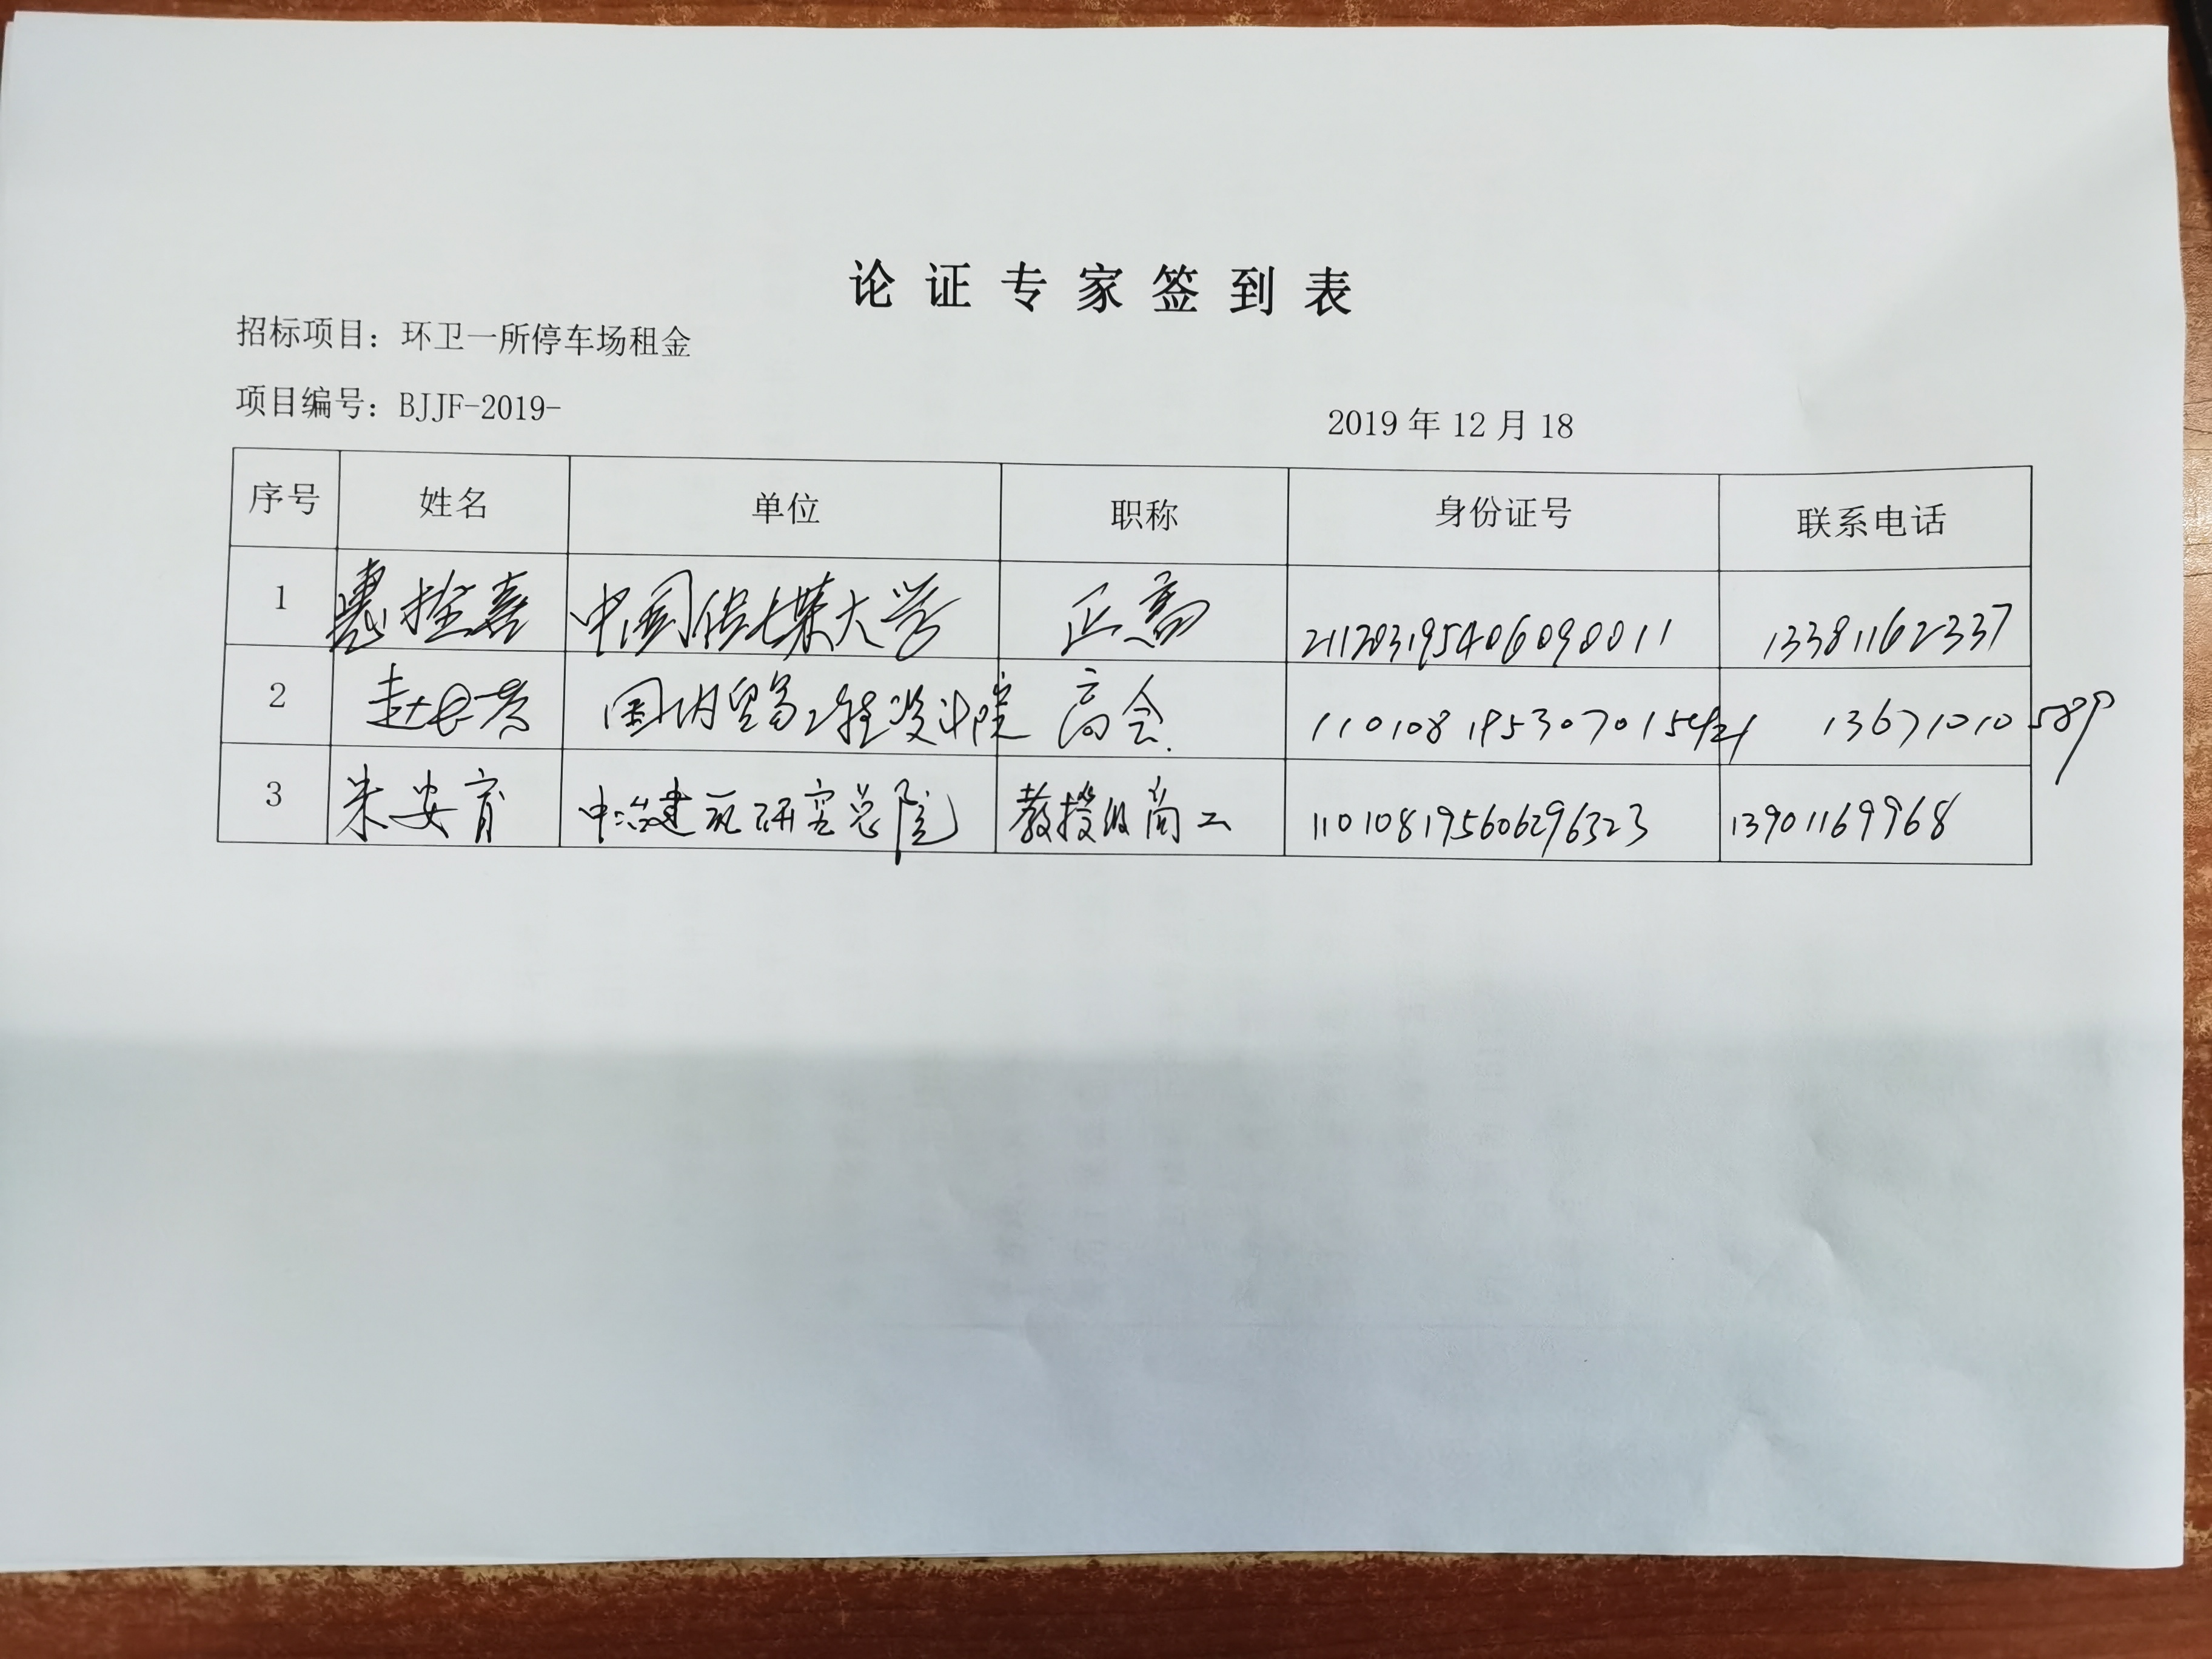 论证专家签到表
招标项目：环卫一所停车场租金
项目编号：BJJF-2019-
2019年12月18
序号 姓名 单位 职称 身份证号 联系电话
1 惠拴喜 中国传媒大学 正高 211203195406090011 13381162337
2 赵 国内贸易工程设计院 高会 13671010589
3 朱安育 中冶建筑研究总院 教授级高工 110108195606296323 13901169968